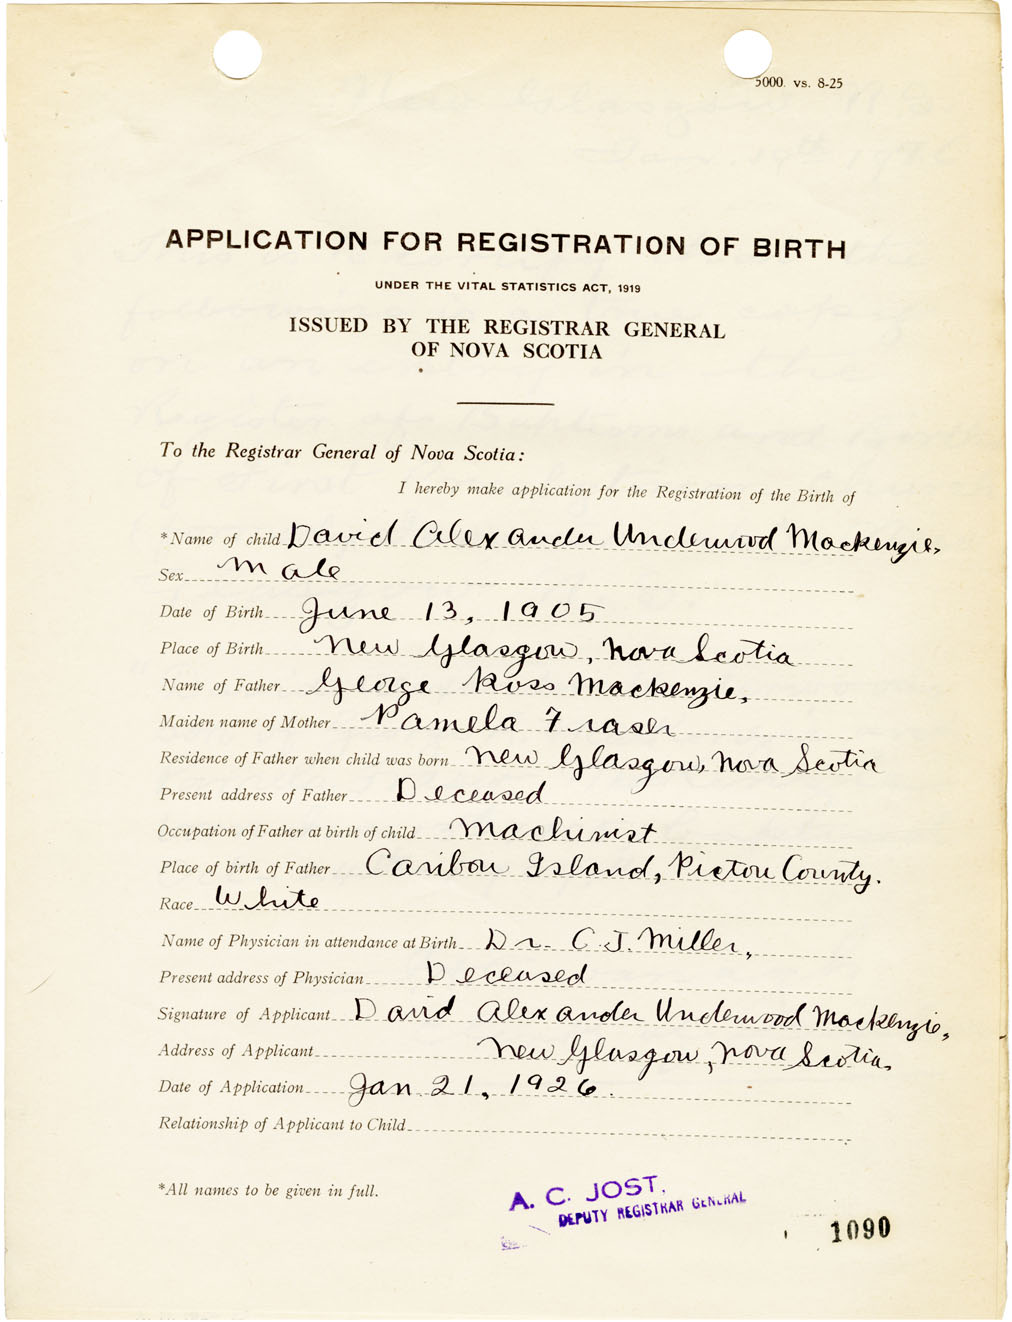 5000. vs. 8-25
APPLICATION FOR REGISTRATION OF BIRTH
UNDER THE VITAL STATISTICS ACT, 1919
ISSUED BY THE REGISTRAR GENERAL
OF NOVA SCOTIA
To the Registrar General of Nova Scotia:
I hereby make application for the Registration of the Birth of
*Name of child David Alexander Underwood Mackenzie.
Sex Male
Date of Birth June 13, 1905
Place of Birth New Glasgow, Nova Scotia
Name of Father George Ross Mackenzie,
Maiden name of Mother Pamela Fraser
Residence of Father when child was born New Glasgow, Nova Scotia
Present address of Father Deceased
Occupation of Father at birth of child Machinist
Place of birth of Father Caribou Island, Pictou County.
Race White
Name of Physician in attendance at Birth Dr. C. J. Miller,
Present address of Physician Deceased
Signature of Applicant David Alexander Underwood Mackenzie,
Address of Applicant New Glasgow, Nova Scotia.
Date of Application Jan 21, 1926.
Relationship of Applicant to Child
*All names to be given in full.
A. C. JOST,
DEPUTY REGISTRAR GENERAL
1090